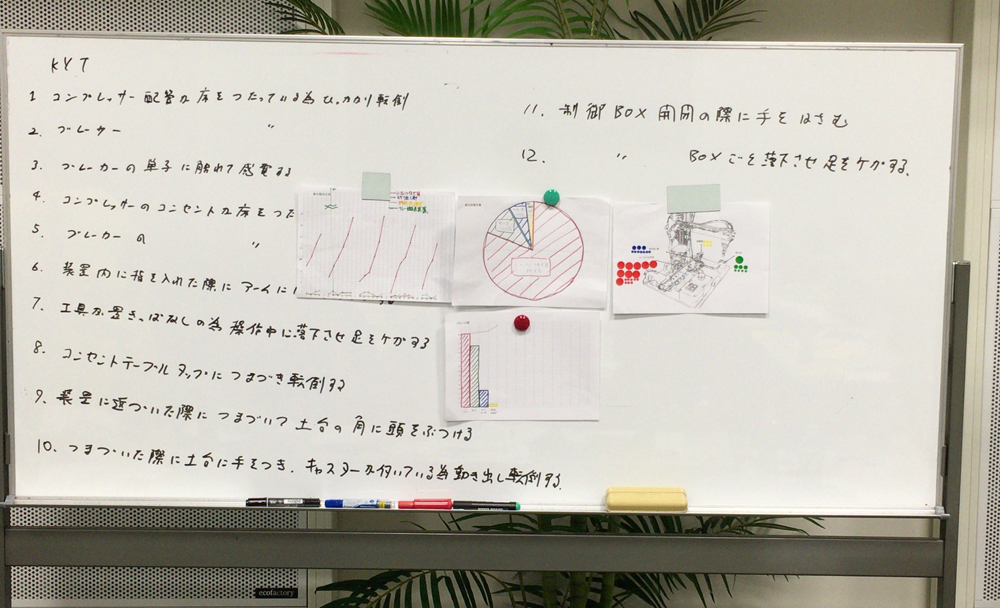 KYT
1 コンプレッサー配管が床をつたっている為ひっかかり転倒
2. ブレーカー 〃
3. ブレーカーの単子に触れて感電する
4. コンプレッサーのコンセントが床をつた
5. ブレーカーの 〃
6. 装置内に指を入れた際にアームに
7. 工具が置きっぱなしの為操作中に落下させ足をケガする
8. コンセントテーブルタップにつまづき転倒する
9. 装置に近づいた際につまづいて土台の角に頭をぶつける
10. つまづいた際に土台に手をつき、キャスターが付いている為動き出し転倒する。
11. 制御BOX開閉の際に手をはさむ
12. 〃 BOXごと落下させ足をケガする。
ecofactory